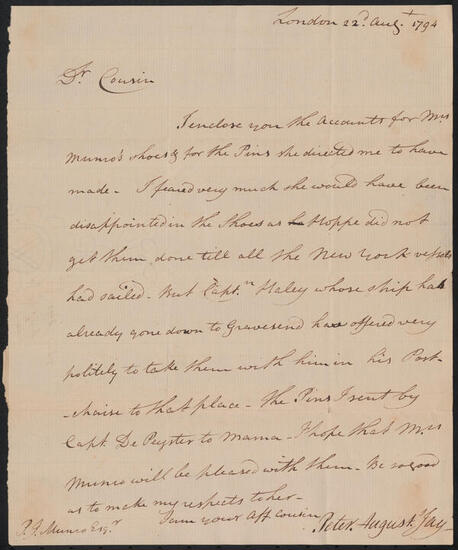 London 22d. Augt. 1794
Dr. Cousin
I enclose you the Accounts for Mrs
Munro's Shoes & for the Pins she directed me to have
made - I feared very much she would have been
disappointed in the Shoes as Hoppe did not
get them done till all the New York vessels
had sailed - But Captn. Haley whose ship has
already gone down to Gravesend has offered very
politely to take them with him in his Post-
-chaise to that place - the Pins I sent by
Capt. De Peyster to Mama - I hope that Mrs
Munro will be pleased with them - Be so good
as to make my respects to her -
I am your Aff cousin
P. J. Munro Esqr. Peter August. Jay